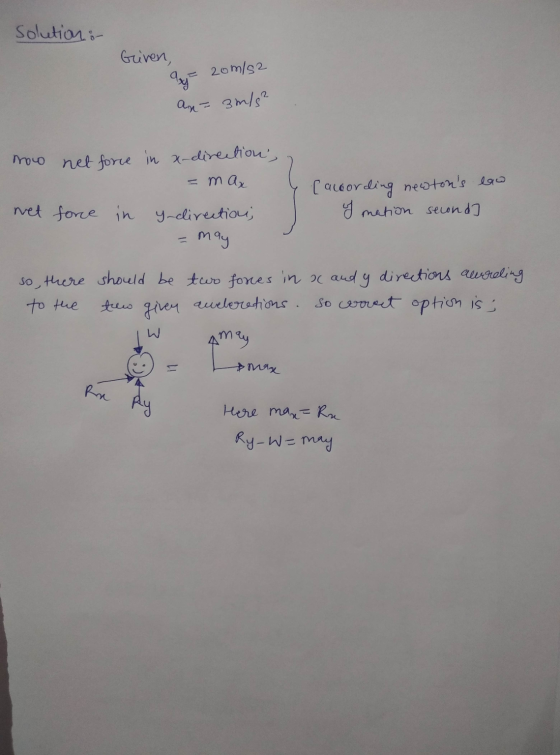 Solution:-
Given,
ay = 20m/s2
ax = 3m/s²
now net force in x-direction;
= max
[according newton's law
net force in y-direction;
of motion second]
= may
so, there should be two forces in x and y directions according
to the two given accelerations. so correct option is;
W
may
=
max
Rx
Ry
Here max = Rx
Ry-W = may